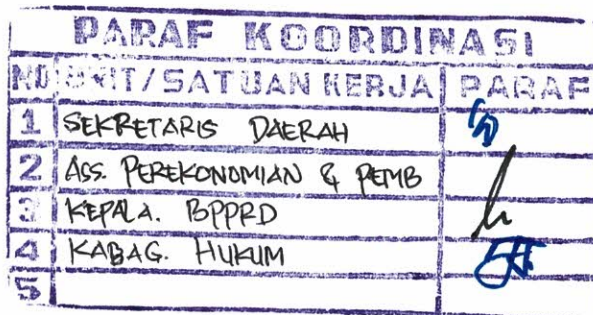 PARAF KOORDINASI
NO UNIT/SATUAN KERJA PARAF
1 SEKRETARIS DAERAH
2 ASS. PEREKONOMIAN & PEMB
3 KEPALA. BPPRD
4 KABAG. HUKUM
5